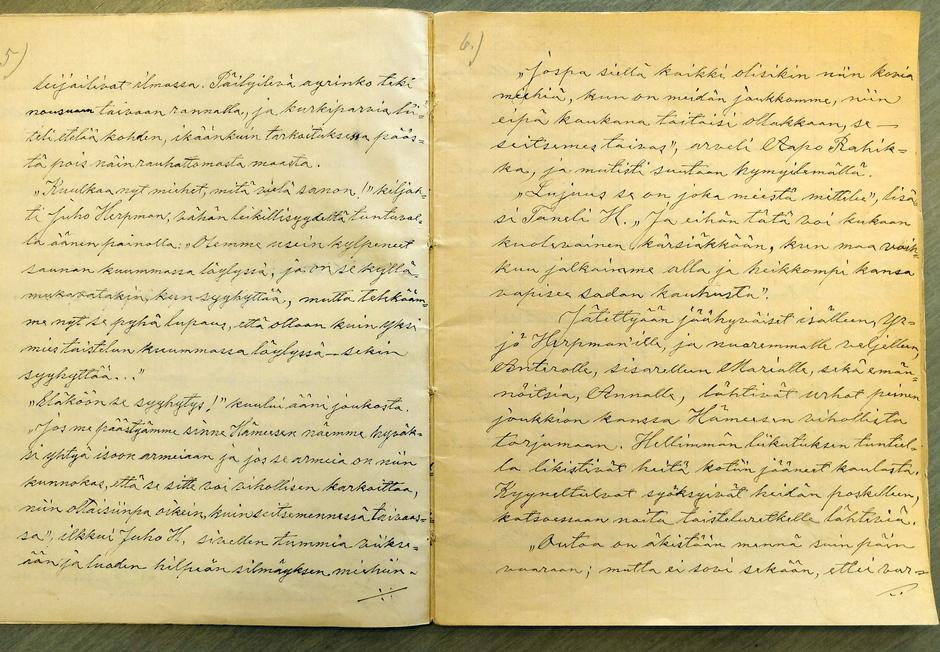 5)
leijailivat ilmassa. Päilyilevä ayrinko teki
nousuaan taivaan rannalla, ja kurkiparvia lii-
teli etelää kohden, ikäänkuin tarkoituksessa pääs-
tä pois näin rauhattomasta maasta.
„Kuulkaa nyt miehet, mitä vielä sanon!" kiljah-
ti Juho Herpman, vähän leikillisyydeltä tuntuval-
la äänen painolla: „Olemme usein kylpeneet
saunan kuummassa löylyssä, ja on se kyllä
mukavatakin, kun syyhyttää, mutta tehkääm-
me nyt se pyhä lupaus, että ollaan kuin yksi
mies taistelun kuummassa löylyssä — sekin
syyhyttää..."
„Eläköön se syyhytys!" kuului ääni joukosta.
„Jos me päästyämme sinne Hämeesen näemme hyväk-
si yhtyä isoon armeiaan ja jos se armeia on niin
kunnokas, että se sitte voi vihollisen karkoittaa,
niin oltaisiinpa oikein, kuin seitsemennessä taivaas-
sa", ilkkui Juho H. sivellen tummia viikse-
ään ja luoden hilpeän silmäyksen miehiin.
6.)
„Jospa siellä kaikki olisikin niin kovia
miehiä, kun on meidän joukkomme, niin
eipä kaukana taitaisi ollakkaan, se —
seitsemes taivas", arveli Aapo Rahik-
ka, ja mutisti suutaan hymyilemättä.
„Lujuus se on, joka meistä mittelee", lisä-
si Taneli H. „Ja eihän tätä voi kukaan
kuolevainen kärsiäkkään, kun maa vaik-
kuu jalkaimme alla ja heikkompi kansa
vapisee sodan kauhusta".
Jätettyään jäähyväiset isälleen, Yr-
jö Herpman'ille, ja nuoremmalle veljelleen,
Antirolle, sisarelleen Marialle, sekä emän-
nöitsiä, Annalle, lähtivät urhot pienen
joukkion kanssa Hämeesen vihollista
torjumaan. Hellimmän liikutuksen tunteel-
la likistivät heitä kotiin jääneet kaulasta.
Kyyneltulvat syöksyivät heidän poskelleen,
katsoessaan noita taisteluretkelle lähtiviä.
„Outoa on äkistään mennä suin päin
vaaraan; mutta ei sovi sekään, ettei var-